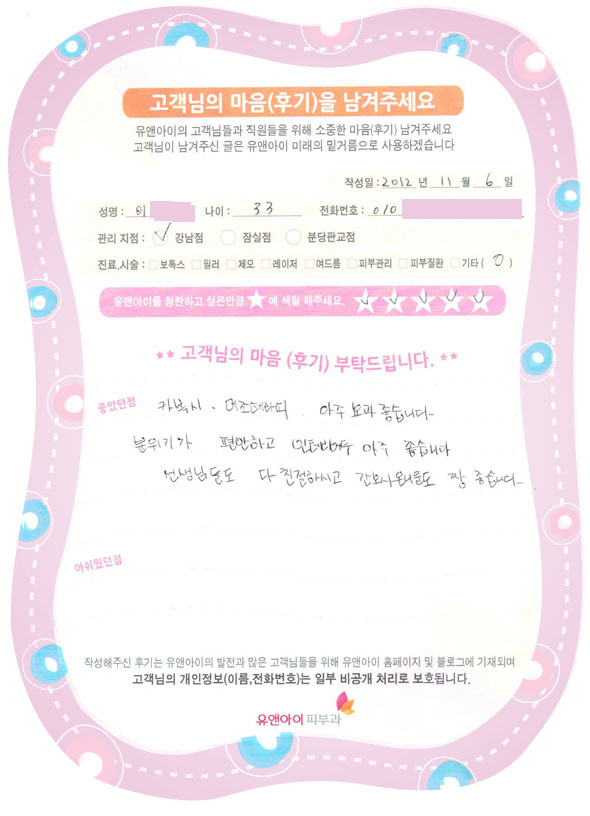 고객님의 마음(후기)을 남겨주세요
유앤아이의 고객님들과 직원들을 위해 소중한 마음(후기) 남겨주세요
고객님이 남겨주신 글은 유앤아이 미래의 밑거름으로 사용하겠습니다
작성일 : 2012 년 11 월 6 일
성명 : 이 나이 : 33 전화번호 : 010
관리 지점 : 강남점 잠실점 분당판교점
진료,시술 : 보톡스 필러 제모 레이저 여드름 피부관리 피부질환 기타 ( 0 )
유앤아이를 칭찬하고 싶은만큼 ★ 에 색칠 해주세요. ★★★★★
** 고객님의 마음 (후기) 부탁드립니다. **
좋았던점 카복시 . 메조테라피 . 아주 효과 좋습니다~
분위기가 편안하고 인테리어두 아주 좋습니다
선생님들도 다 친절하시고 간호사 들도 짱 좋습니다~
아쉬웠던점
작성해주신 후기는 유앤아이의 발전과 많은 고객님들을 위해 유앤아이 홈페이지 및 블로그에 기재되며
고객님의 개인정보(이름,전화번호)는 일부 비공개 처리로 보호됩니다.
유앤아이 피부과